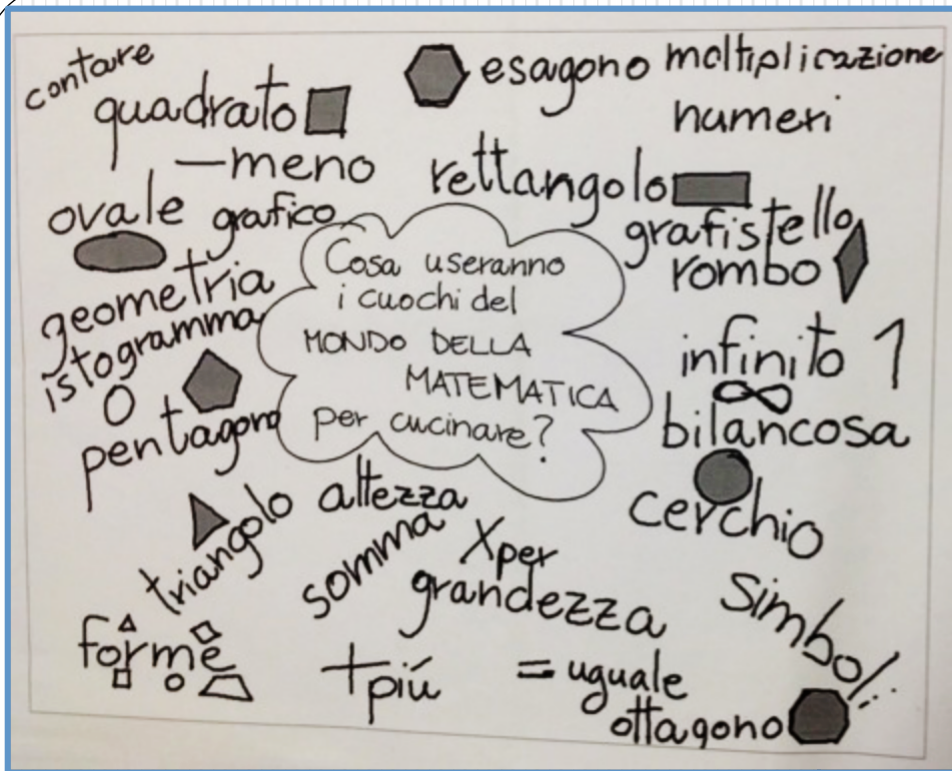 contare
quadrato
esagono
moltiplicazione
numeri
– meno
rettangolo
ovale
grafico
grafistello
rombo
geometria
istogramma
Cosa useranno
i cuochi del
MONDO DELLA
MATEMATICA
per cucinare?
infinito 1
∞
0
pentagono
bilancosa
cerchio
triangolo
altezza
somma
X per
grandezza
Simboli
forme
+ più
= uguale
ottagono